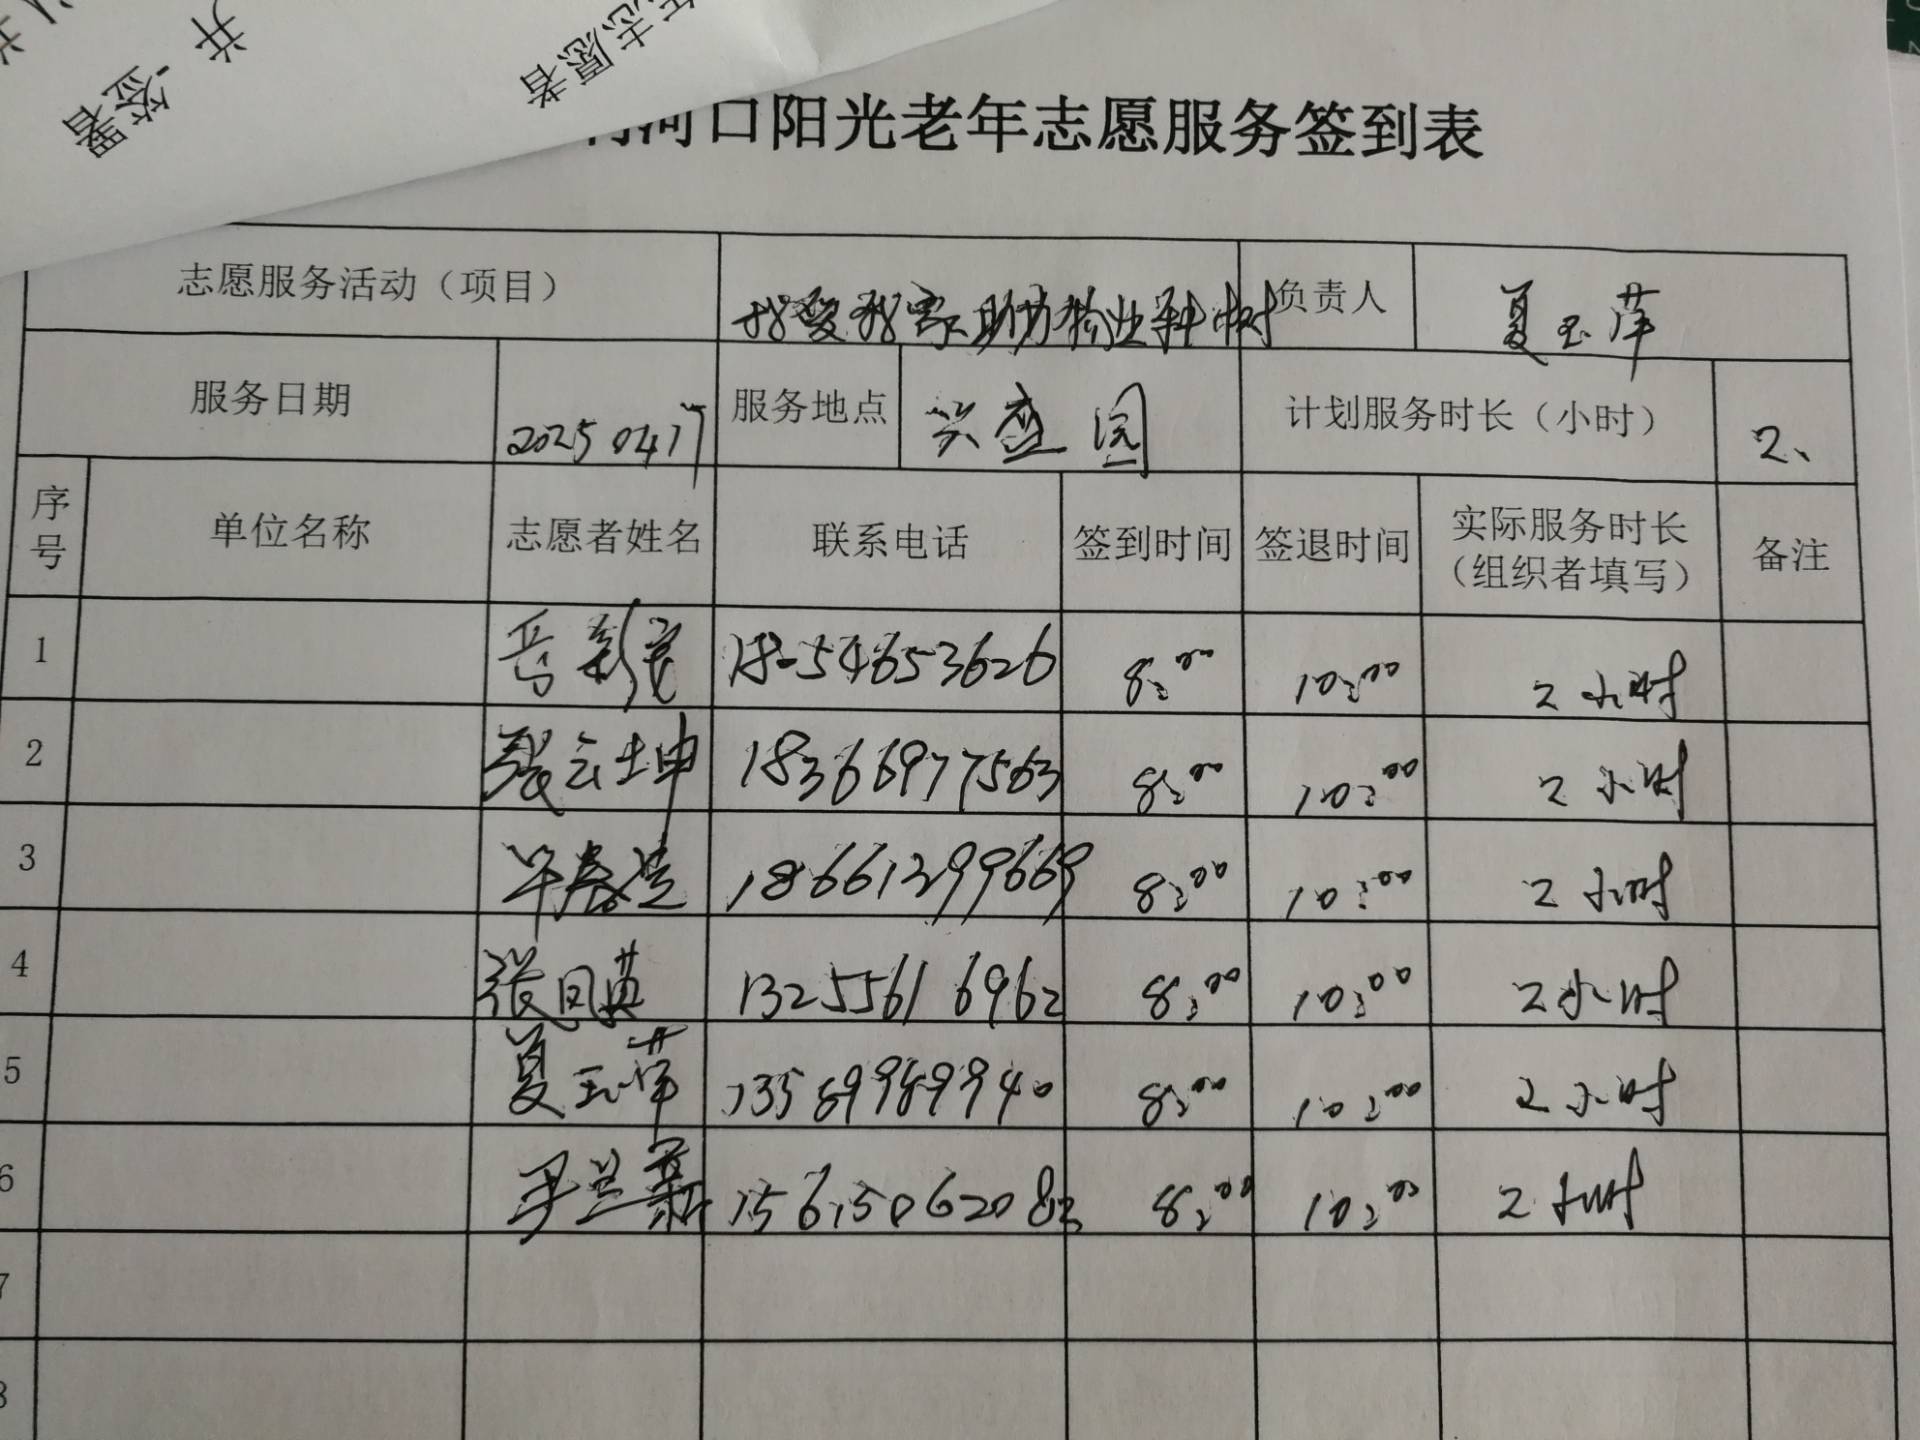 并
签署
志愿者
河口阳光老年志愿服务签到表
志愿服务活动（项目） 我爱我家助力物业种树 负责人 夏玉萍
服务日期 20250417 服务地点 园 计划服务时长（小时） 2、
序号 单位名称 志愿者姓名 联系电话 签到时间 签退时间 实际服务时长（组织者填写） 备注
1 8:00 10:00 2小时
2 张云坤 18366977563 8:00 10:00 2小时
3 18661299669 8:00 10:00 2小时
4 张凤英 13255616962 8:00 10:00 2小时
5 夏玉萍 13589989940 8:00 10:00 2小时
6 兰 15615062083 8:00 10:00 2小时
7
8